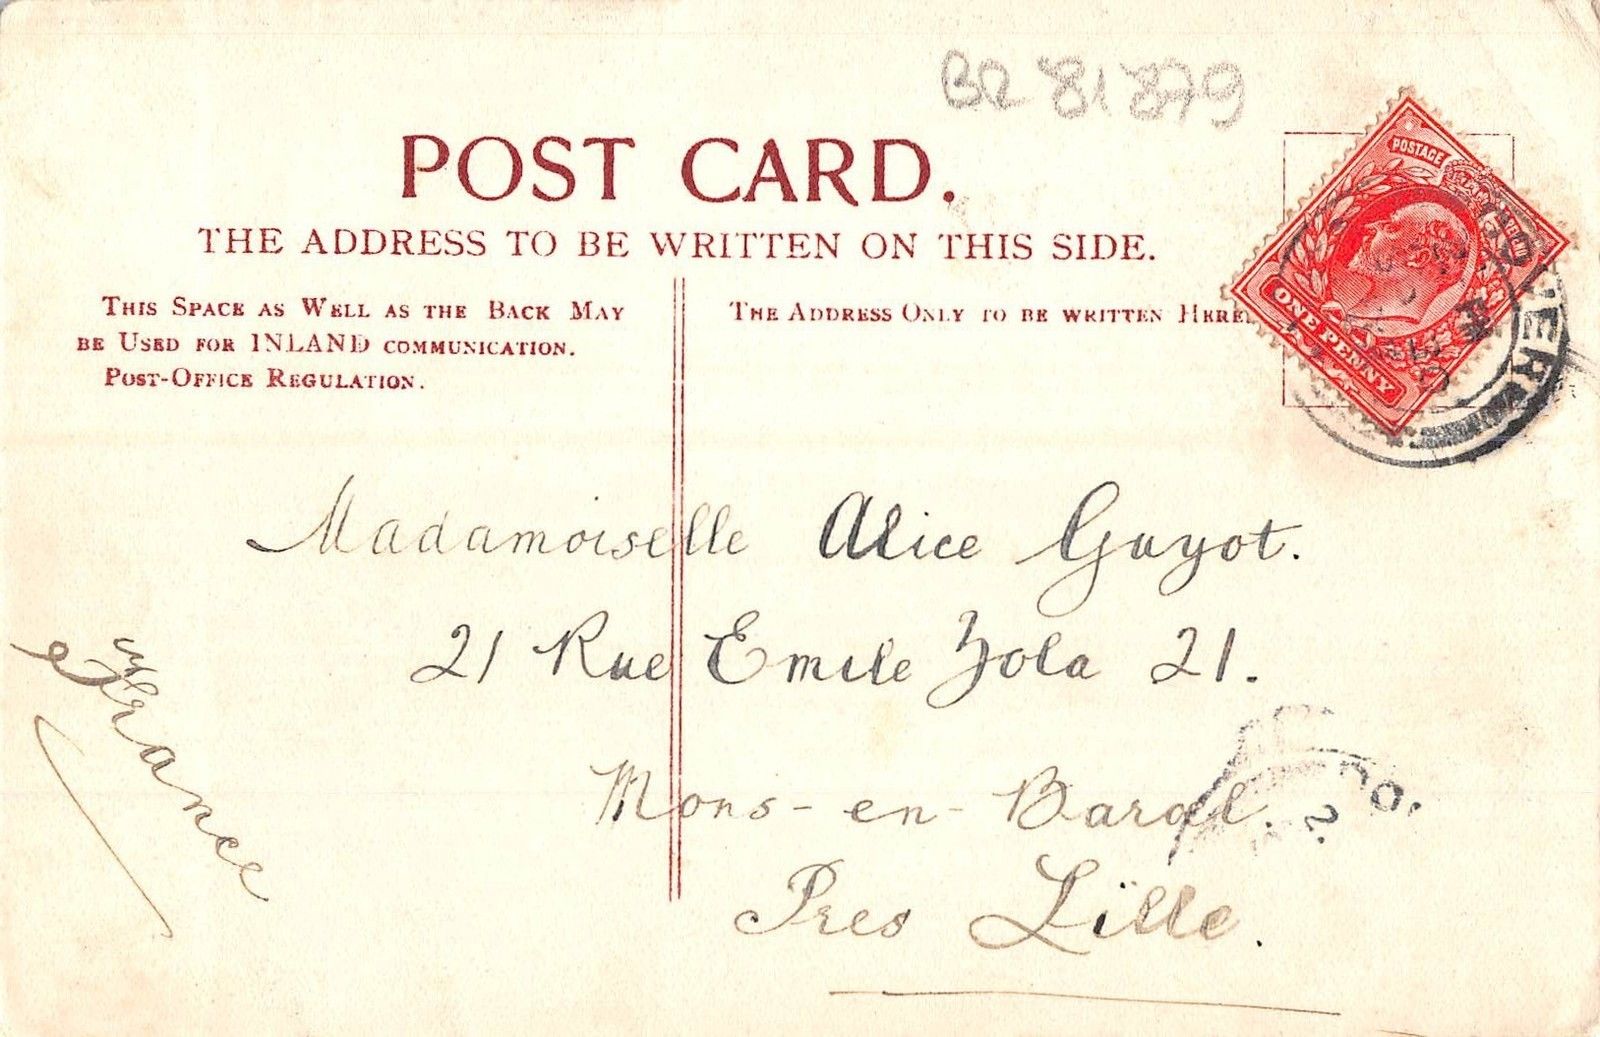 BR 81 879
POST CARD.
THE ADDRESS TO BE WRITTEN ON THIS SIDE.
THIS SPACE AS WELL AS THE BACK MAY
BE USED FOR INLAND COMMUNICATION.
POST-OFFICE REGULATION.
THE ADDRESS ONLY TO BE WRITTEN HERE.
POSTAGE
ONE PENNY
DOVER
Madamoiselle Alice Guyot.
21 Rue Emile Zola 21.
Mons-en-Baroel.
Pres Lille.
France